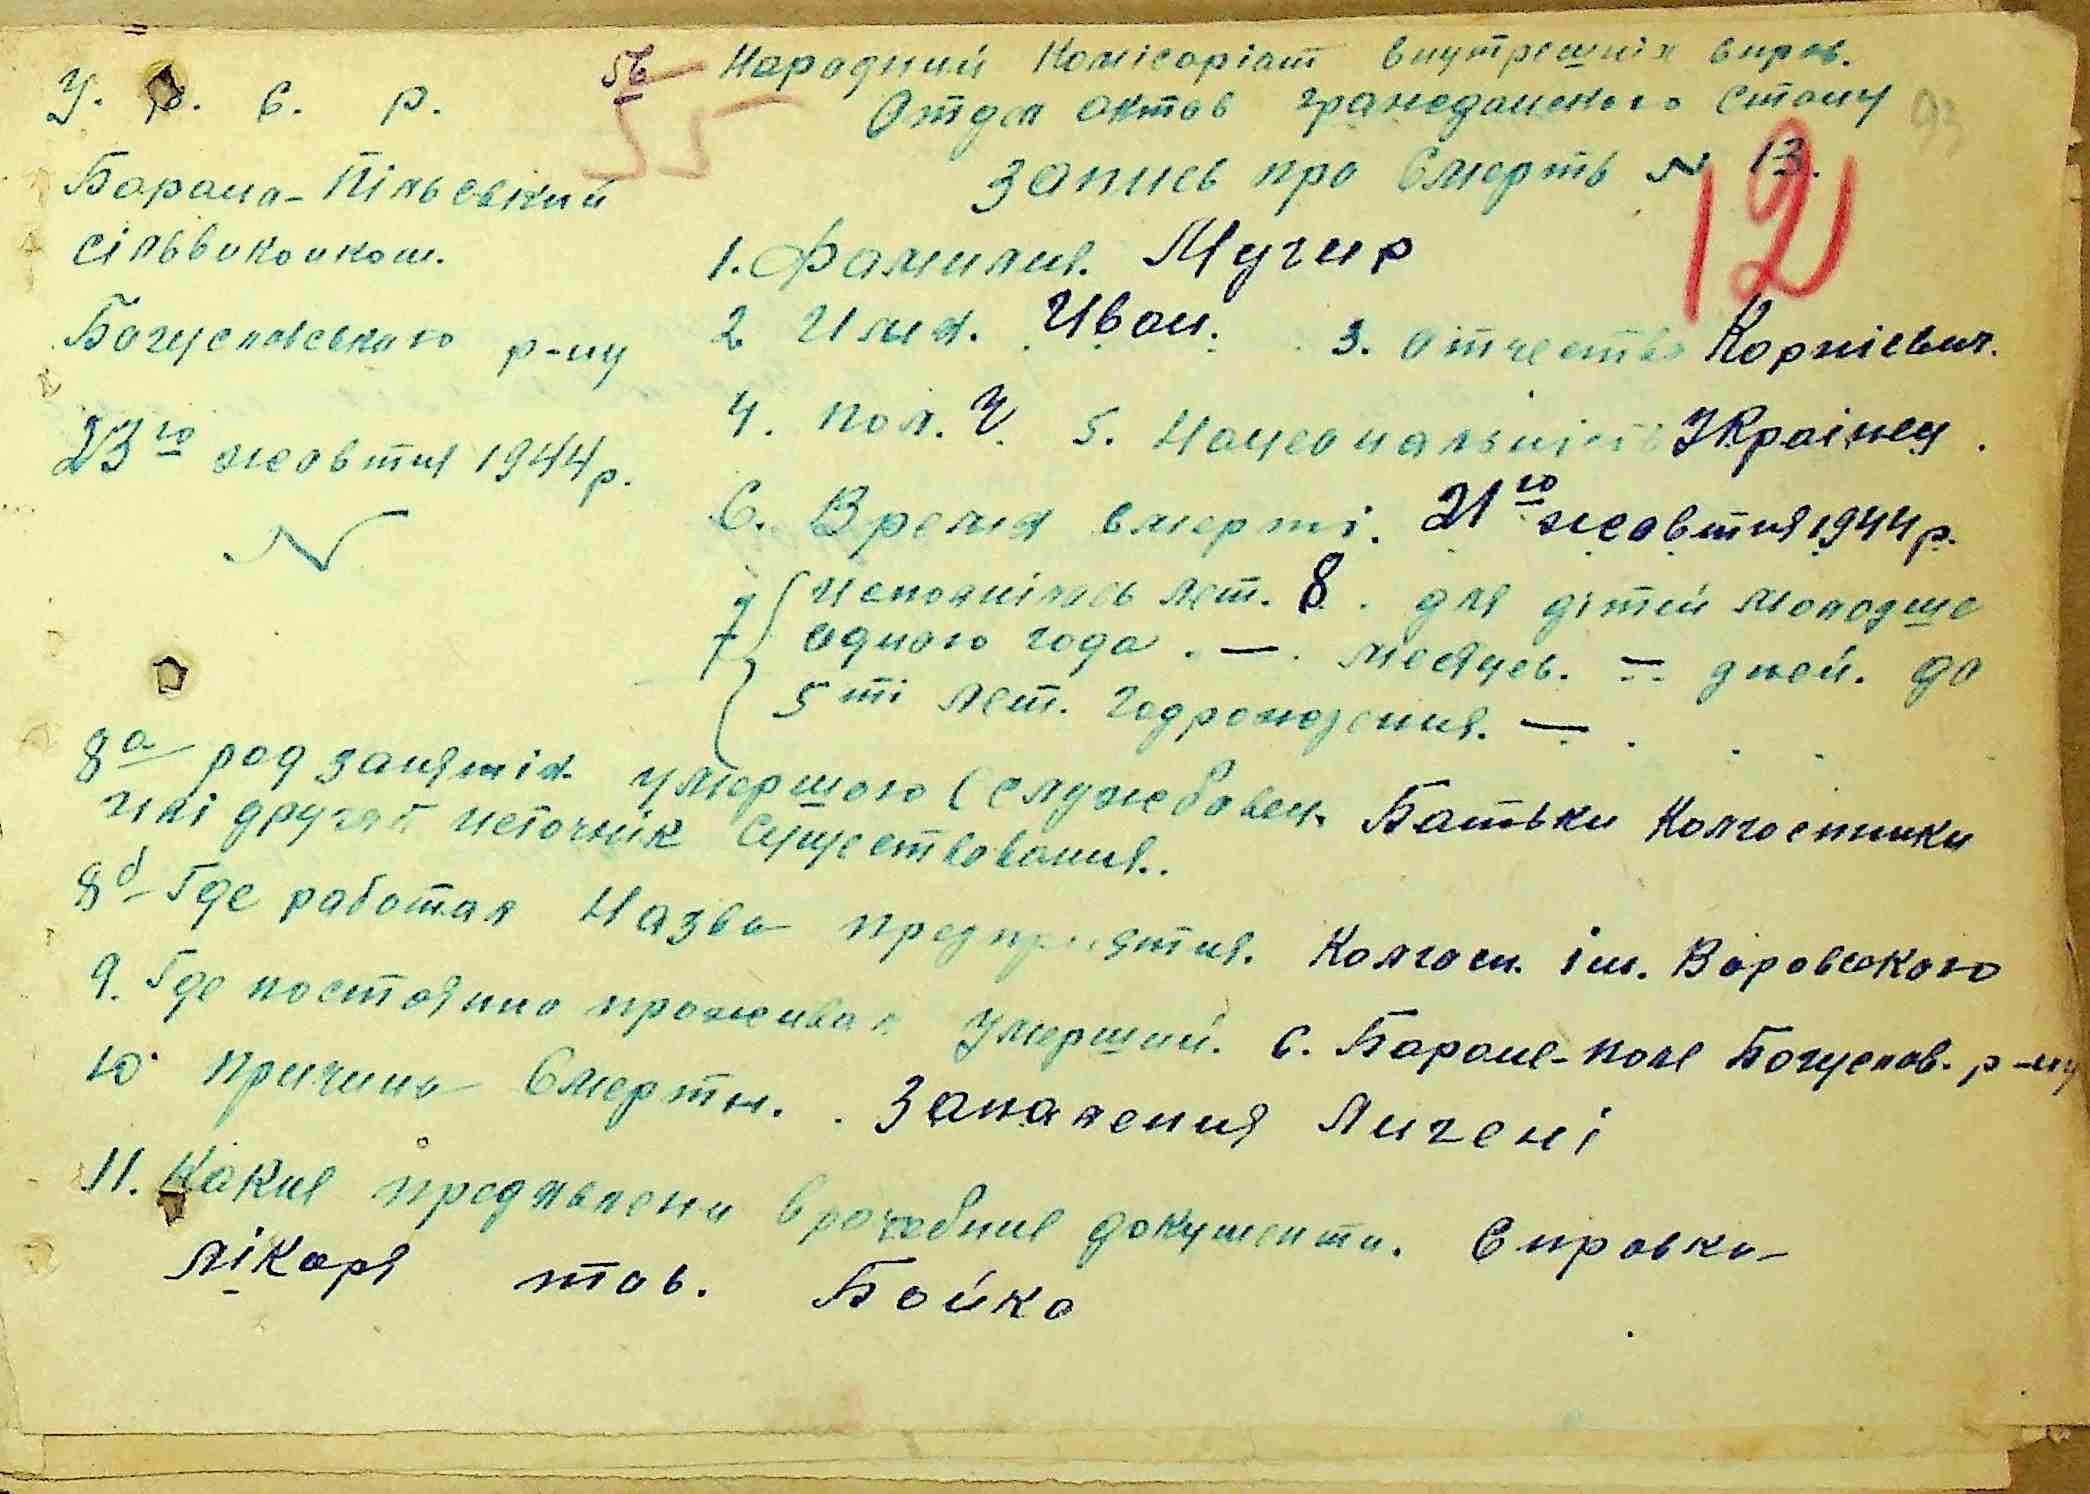 У. Р. С. Р.
56
55
Барана-Пільський
сільвиконком.
Богуславського р-ну
23го жовтня 1944р.
N
Народний Комісаріат внутрешніх вправ.
Отдел актов гражеданского стану
93
Запись про Смерть N 13.
12
1. Фамилия. Мугир
2 Имя. Иван. 3. отчество Корнієвич.
4. пол. Ч. 5. Нацеональність Украінец.
6. Время смерті. 21го жеовтня 1944р.
7 Исполнілось лет. 8. для дітей молодше
одного года. —. месяцев. — дней. до
5ті лет. год рождения. —.
8а род занятія умершого (служебовец. Батьки Колгоспники
илі другой источнік существования.
8б Где работал Назва предприятия. Колгосп. ім. Воровского
9. Где постояно прожевал Умерший. С. Баране-поле Богуслав. р-ну
10. Причина Смерти. Запаления Лигені
11. Какие предявлени врачебние документи. Справка
лікаря тов. Бойко